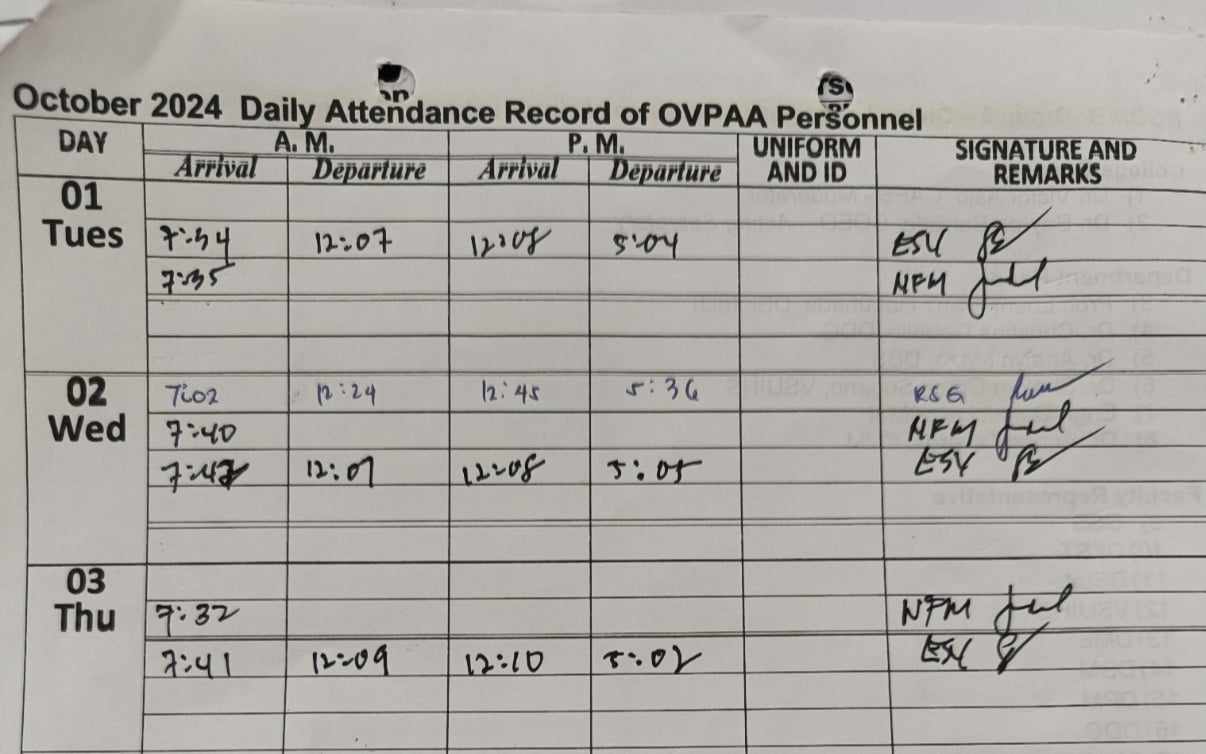 October 2024 Daily Attendance Record of OVPAA Personnel
DAY A. M. P. M. UNIFORM AND ID SIGNATURE AND REMARKS
Arrival Departure Arrival Departure
01
Tues 7:34 12:07 12:08 5:04 ESY
7:35 NFM
02 7:02 12:24 12:45 5:36 RSG
Wed 7:40 NFM
12:07 12:08 5:05 ESY
03
Thu 7:32 NFM
7:41 12:09 12:10 5:02 ESY